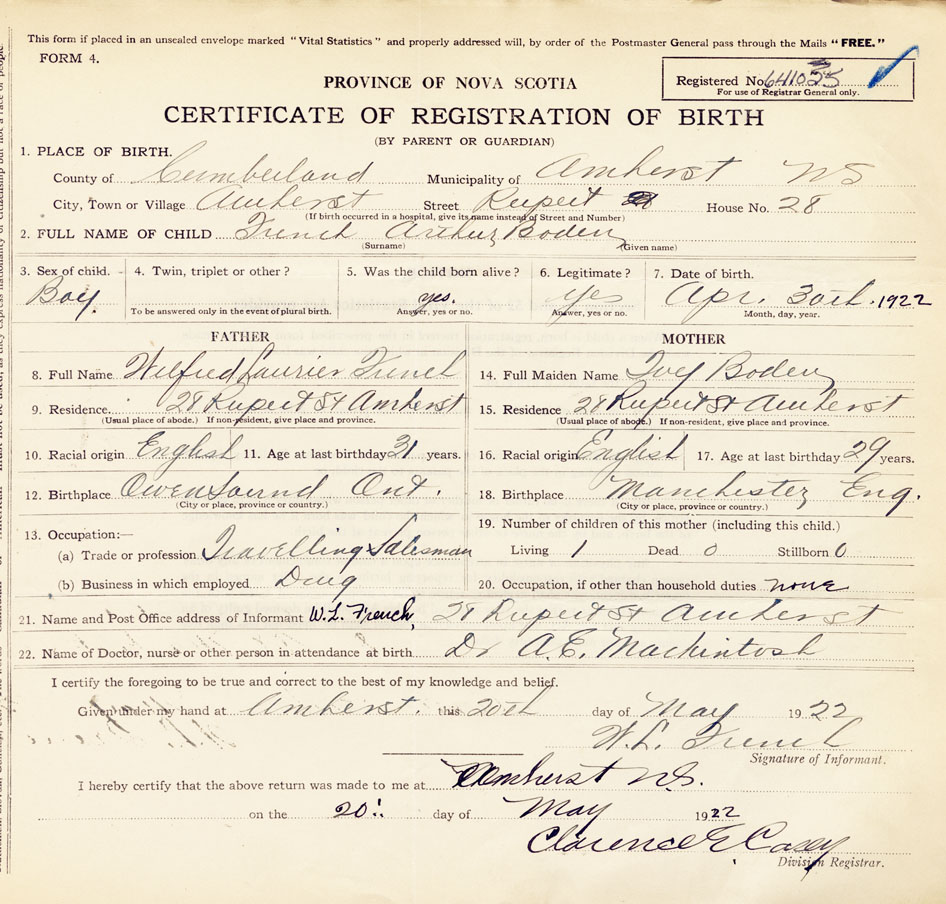 This form if placed in an unsealed envelope marked "Vital Statistics" and properly addressed will, by order of the Postmaster General pass through the Mails "FREE."
FORM 4.
PROVINCE OF NOVA SCOTIA
Registered No.
For use of Registrar General only.
CERTIFICATE OF REGISTRATION OF BIRTH
(BY PARENT OR GUARDIAN)
1. PLACE OF BIRTH.
County of Cumberland Municipality of Amherst NS
City, Town or Village Amherst Street Rupert House No. 28
(If birth occurred in a hospital, give its name instead of Street and Number)
2. FULL NAME OF CHILD French Arthur Boden
(Surname) (Given name)
3. Sex of child. 4. Twin, triplet or other? 5. Was the child born alive? 6. Legitimate? 7. Date of birth.
Boy. yes. Yes Apr. 30th. 1922
To be answered only in the event of plural birth. Answer, yes or no. Answer, yes or no. Month, day, year.
FATHER MOTHER
8. Full Name Wilfred Laurier French 14. Full Maiden Name Ivy Boden
9. Residence 28 Rupert St Amherst 15. Residence 28 Rupert St Amherst
(Usual place of abode.) If non-resident, give place and province. (Usual place of abode.) If non-resident, give place and province.
10. Racial origin English 11. Age at last birthday 31 years. 16. Racial origin English 17. Age at last birthday 29 years.
12. Birthplace Owen Sound Ont. 18. Birthplace Manchester Eng.
(City or place, province or country.) (City or place, province or country.)
13. Occupation:— 19. Number of children of this mother (including this child.)
(a) Trade or profession Travelling Salesman Living 1 Dead 0 Stillborn 0
(b) Business in which employed Drug 20. Occupation, if other than household duties none
21. Name and Post Office address of Informant W.L. French, 28 Rupert St Amherst
22. Name of Doctor, nurse or other person in attendance at birth Dr A.E. Mackintosh
I certify the foregoing to be true and correct to the best of my knowledge and belief.
Given under my hand at Amherst. this 20th day of May 1922
W.L. French
Signature of Informant.
I hereby certify that the above return was made to me at Amherst N.S.
on the 20 day of May 1922
Clarence E. Casey
Division Registrar.